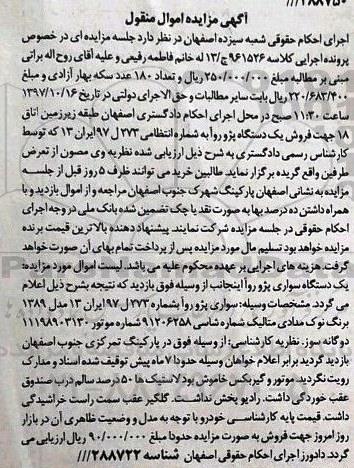 ۲۸۸۷۵۰///
آگهی مزایده اموال منقول
اجرای احکام حقوقی شعبه سیزده اصفهان در نظر دارد جلسه مزایده ای در خصوص
پرونده اجرایی کلاسه ۹۶۱۵۲۶ ج/۱۳ له خانم فاطمه رفیعی و علیه آقای روح اله براتی
مبنی بر مطالبه مبلغ ۲۵۰/۰۰۰/۰۰۰ ریال و تعداد ۱۸۰ عدد سکه بهار آزادی و مبلغ
۲۲۰/۶۸۳/۴۰۰ ریال بابت سایر مطالبات و حق الاجرای دولتی در تاریخ ۱۳۹۷/۱۰/۱۶
ساعت ۱۱:۳۰ صبح در محل اجرای احکام دادگستری اصفهان طبقه زیرزمین اتاق
۱۸ جهت فروش یک دستگاه پژو روآ به شماره انتظامی ۲۷۳ ل ۹۷ ایران ۱۳ که توسط
کارشناس رسمی دادگستری به شرح ذیل ارزیابی شده نظریه وی مصون از تعرض
طرفین واقع گردیده برگزار نماید. طالبین خرید می توانند ظرف ۵ روز قبل از جلسه
مزایده به نشانی اصفهان پارکینگ شهرک جنوب اصفهان مراجعه و از اموال بازدید و با
همراه داشتن ده درصد بها به صورت نقد یا چک تضمین شده بانک ملی در وجه اجرای
احکام حقوقی در جلسه مزایده شرکت نمایند. پیشنهاد دهنده بالاترین قیمت برنده
مزایده خواهد بود تسلیم مال مورد مزایده پس از پرداخت تمام بهای آن صورت خواهد
گرفت. هزینه های اجرایی بر عهده محکوم علیه می باشد. لیست اموال مورد مزایده:
یک دستگاه سواری پژو روآ اینجانب از وسیله فوق بازدید که نتیجه بشرح ذیل اعلام
می گردد. مشخصات وسیله: سواری پژو روآ بشماره ۲۷۳ ل ۹۷ ایران ۱۳ مدل ۱۳۸۹
برنگ نوک مدادی متالیک شماره شاسی ۹۱۲۰۶۲۵۸ شماره موتور ۱۱۱۹۸۹۰۳۱۳۰
دوگانه سوز. نظریه کارشناسی: از وسیله فوق در پارکینگ تمرکزی جنوب اصفهان
بازدید گردید برابر اعلام خواهان وسیله حدودا ۷ ماه پیش توقیف شده اسناد و مدارک
رویت نگردید. موتور و گیربکس خاموش بود لاستیک ها ۵۰ درصد سالم درب صندوق
عقب خوردگی داشت. رادیو پخش نداشت. گلگیر عقب سمت راست خراشیدگی
داشت. قیمت پایه کارشناسی خودرو با توجه به مدل و وضعیت ظاهری آن در بازار
روز امروز جهت فروش به صورت مزایده حدودا مبلغ ۹۰/۰۰۰/۰۰۰ ریال ارزیابی می
گردد. دادورز اجرای احکام حقوقی اصفهان شناسه ۲۸۸۷۲۲///